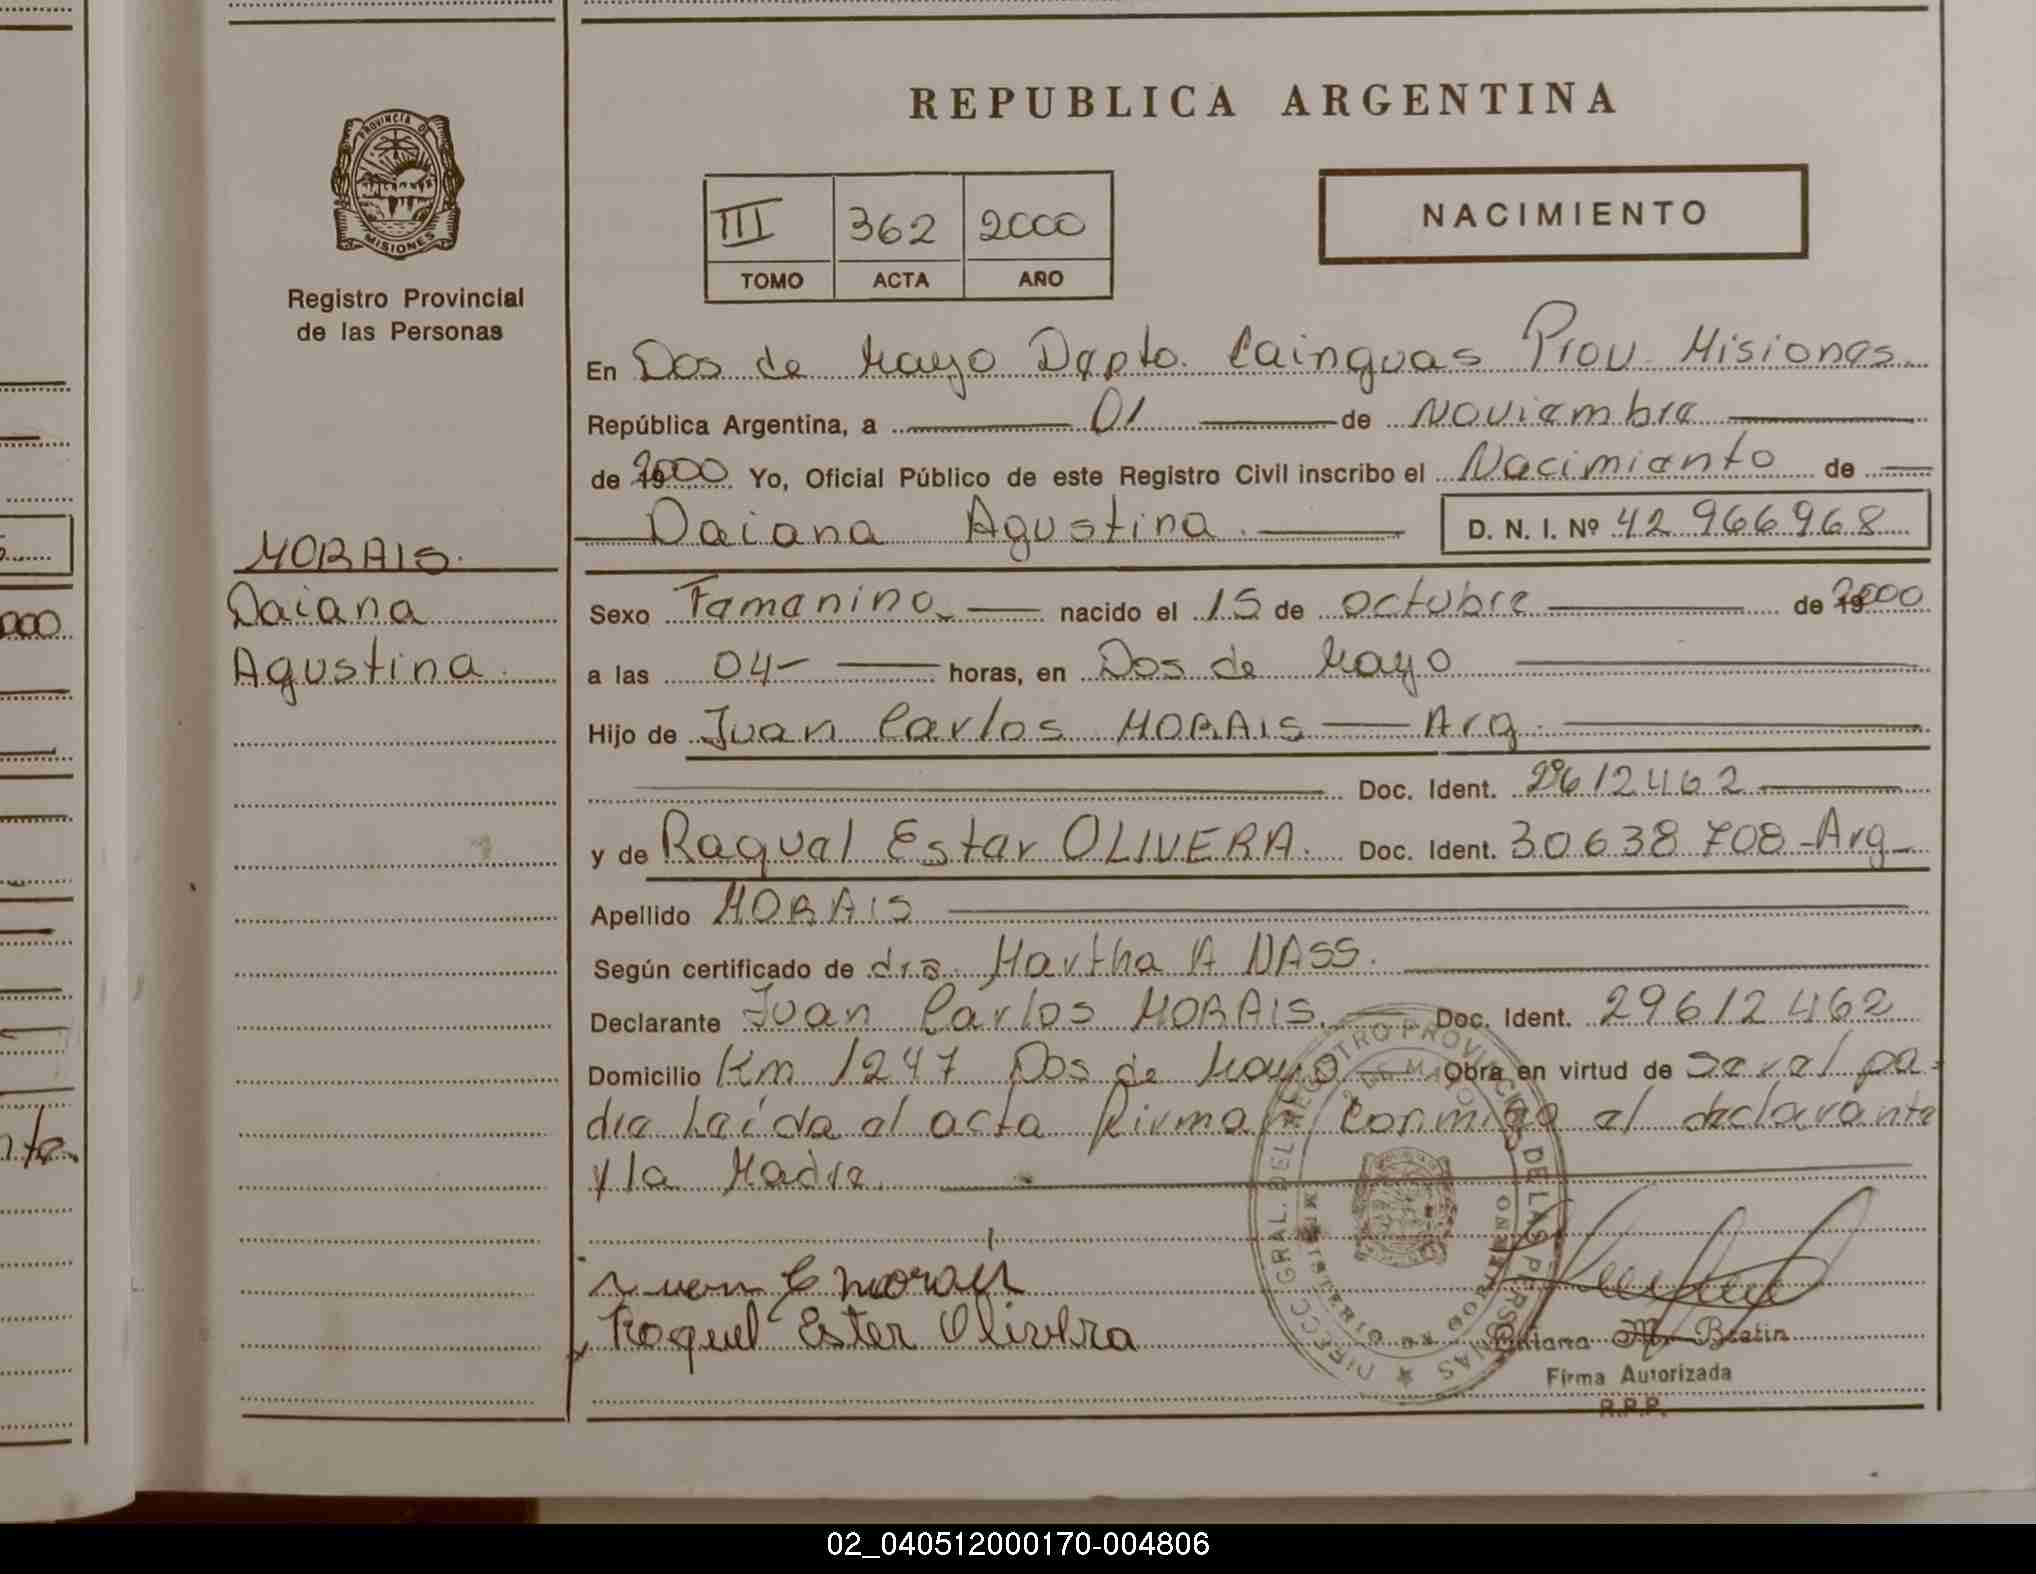 REPUBLICA ARGENTINA
PROVINCIA DE
MISIONES
Registro Provincial
de las Personas
III 362 2000
TOMO ACTA AÑO
NACIMIENTO
En Dos de Mayo Depto. Cainguas Prov. Misiones
República Argentina, a 01 de Noviembre
de 2000 Yo, Oficial Público de este Registro Civil inscribo el Nacimiento de
Daiana Agustina. D. N. I. Nº 42.966.968
MORAIS.
Daiana
Agustina.
Sexo Femenino nacido el 15 de octubre de 2000
a las 04- horas, en Dos de Mayo
Hijo de Juan Carlos MORAIS Arg.
Doc. Ident. 29612462
y de Raquel Ester OLIVERA. Doc. Ident. 30638708-Arg-
Apellido MORAIS
Según certificado de dra. Martha A NASS.
Declarante Juan Carlos MORAIS. Doc. Ident. 29612462
Domicilio Km 1247 Dos de Mayo Obra en virtud de ser el pa-
dre Leída el acta firman conmigo el declarante
y la Madre.
Juan C morais
Raquel Ester Olivera
DIRECC. GRAL. DEL REGISTRO PROVINCIAL DE LAS PERSONAS
2 DE MAYO
MINISTERIO DE GOBIERNO
M. Bratin
Firma Autorizada
R.P.P.
02_040512000170-004806